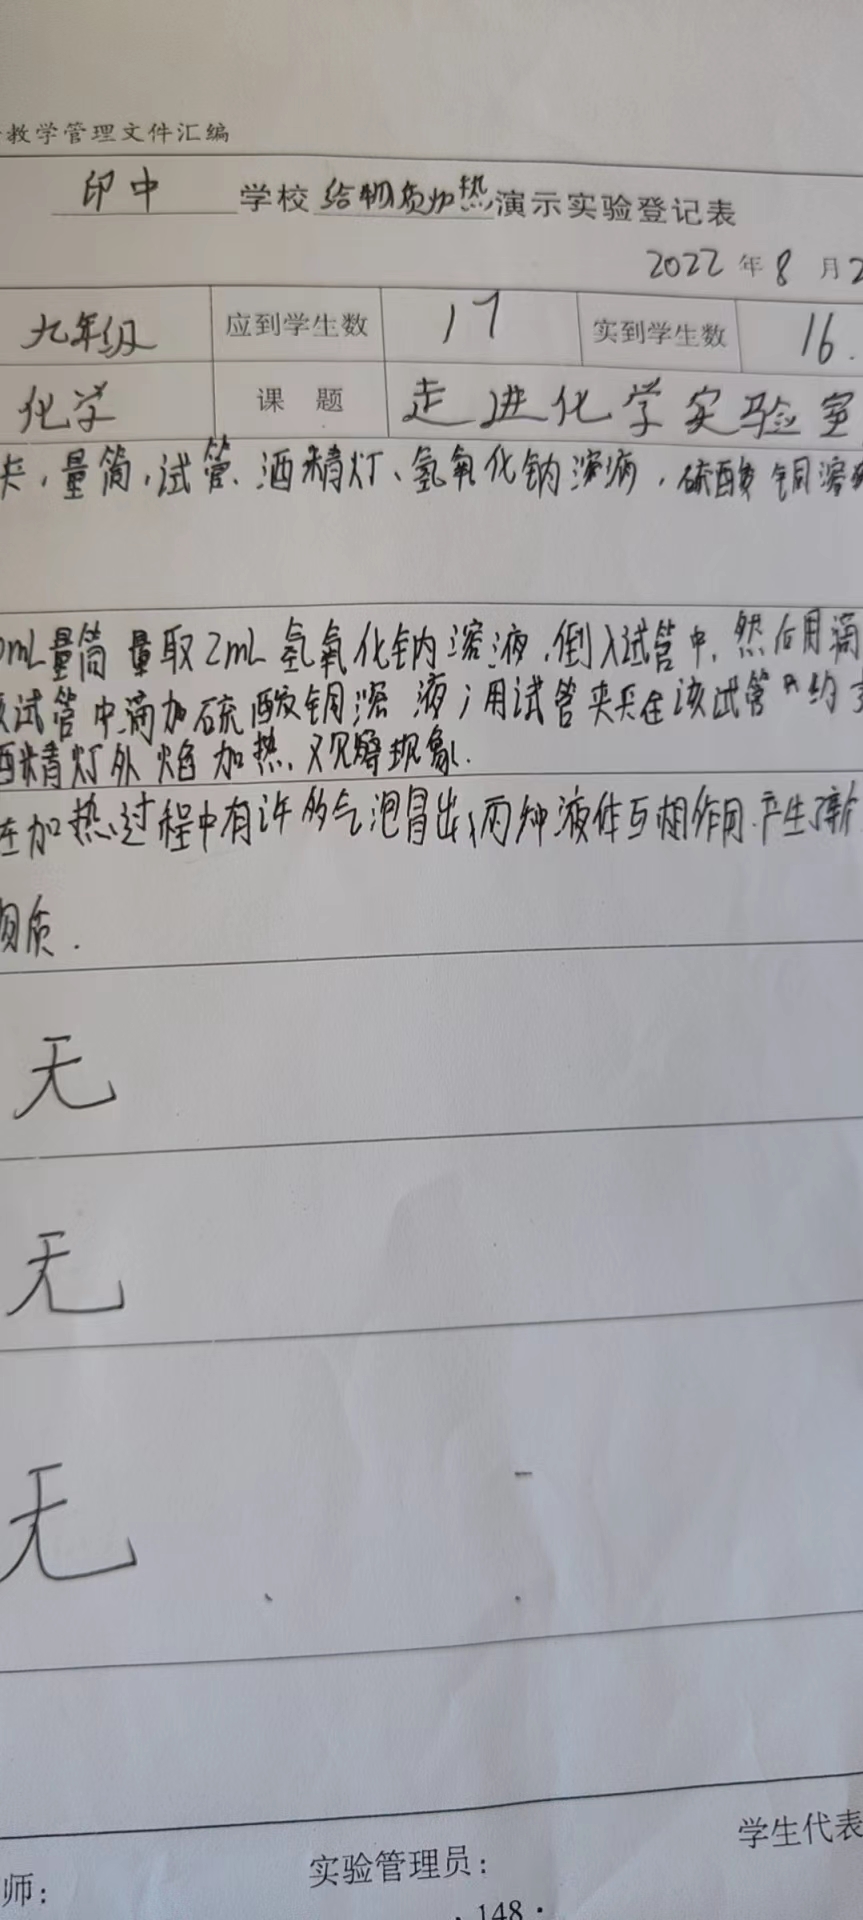 教学管理文件汇编
印中 学校 给物质加热 演示实验登记表
2022 年 8 月 2
九年级 应到学生数 17 实到学生数 16.
化学 课 题 走进化学实验室
夹，量筒，试管、酒精灯、氢氧化钠溶液，硫酸铜溶液
0mL量筒量取2mL氢氧化钠溶液，倒入试管中，然后用滴
试管中滴加硫酸铜溶液；用试管夹夹住该试管 约
酒精灯外焰加热、观察现象.
在加热过程中有许多气泡冒出、两种液体互相作用.产生新
物质.
无
无
无
学生代表
实验管理员：
师：
·148·